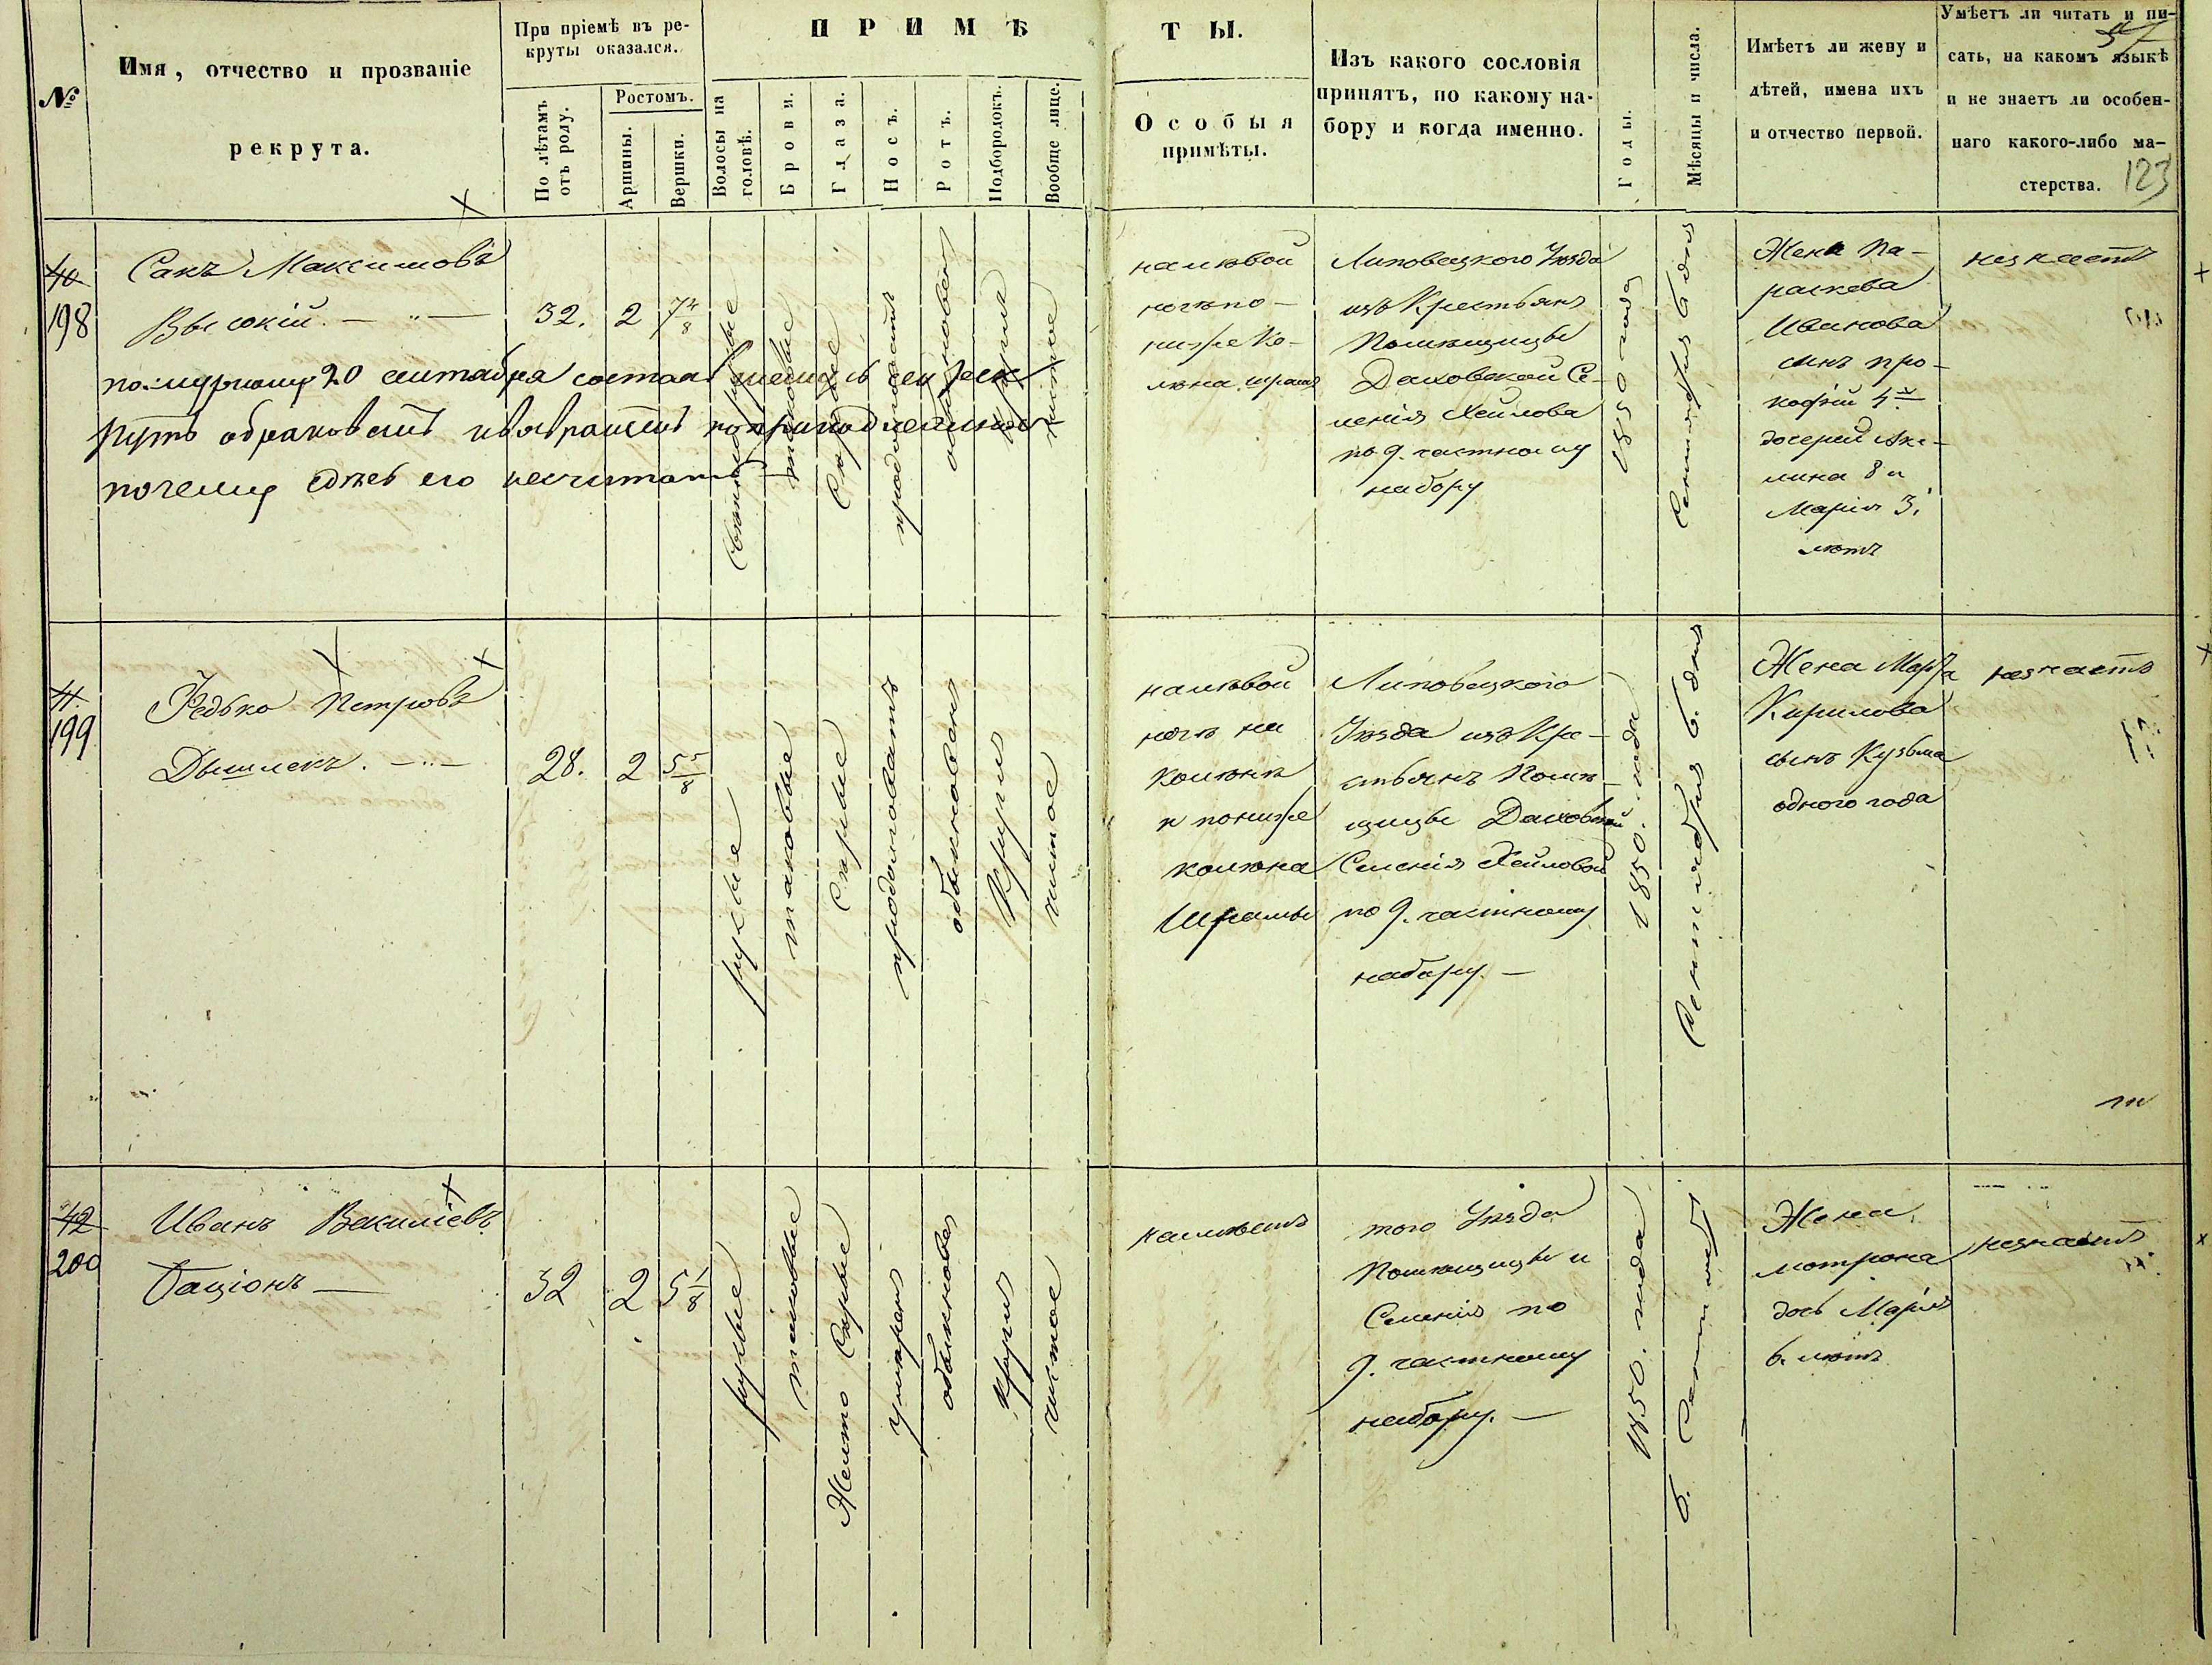 №
Имя, отчество и прозваніе
рекрута.
При пріемѣ въ ре-
круты оказался.
По лѣтамъ
отъ роду.
Ростомъ.
Аршины.
Вершки.
ПРИМѢ
ТЫ.
Волосы на
головѣ.
Брови.
Глаза.
Носъ.
Ротъ.
Подбородокъ.
Вообще лице.
Особыя
примѣты.
Изъ какого сословія
принятъ, по какому на-
бору и когда именно.
Годы.
Мѣсяцы и числа.
Имѣетъ ли жену и
дѣтей, имена ихъ
и отчество первой.
Умѣетъ ли читать и пи-
сать, на какомъ языкѣ
и не знаетъ ли особен-
наго какого-либо ма-
стерства.
123
40
198
Сакъ Максимовъ
Высокій.
32.
2
7 4/8
по журналу 20 сентабра
обраковать
почему его несчитать
таковые
Сѣрые
продолговатъ
обыкновен
чистое
на лѣвой
ногѣ по-
ниже ко-
лѣна шрамъ
Липовецкого Уѣзда
изъ Крестьянъ
Помѣщицы
Даховской Се-
ленія Хейлова
по 9. частному
набору
1850 года
Сентября 6 дня
Жена Па-
раскева
Иванова
сынъ Про-
кофій 4
дочерей Аку-
лина 8 и
Марія 3.
лѣтъ
незнаетъ
41.
199
Федько Петровъ
Дышлекъ.
28.
2
5 5/8
русые
таковые
Сѣрые
продолговатъ
обыкновенъ
Круглъ
чистое
на лѣвой
ногѣ на
колѣнѣ
и пониже
колѣна
Шрамы
Липовецкого
Уѣзда изъ Кре-
стьянъ Помѣ-
щицы Даховской
Селенія Хейловой
по 9. частному
набору.
1850. года
Сентября 6. дня
Жена Марфа
Кирилова
сынъ Кузьма
одного года
незнаетъ
42
200
Иванъ Василіевъ
Гаціонъ
32
2
5 1/8
русые
таковые
Желто Сѣрые
умѣренъ
обыкновен
Круглъ
чистое
неимѣетъ
того Уѣзда
Помѣщицы и
Селенія по
9. частному
набору.
1850. года
6. Сентября
Жена
Мотрона
дочь Марія
6. лѣтъ
незнаетъ